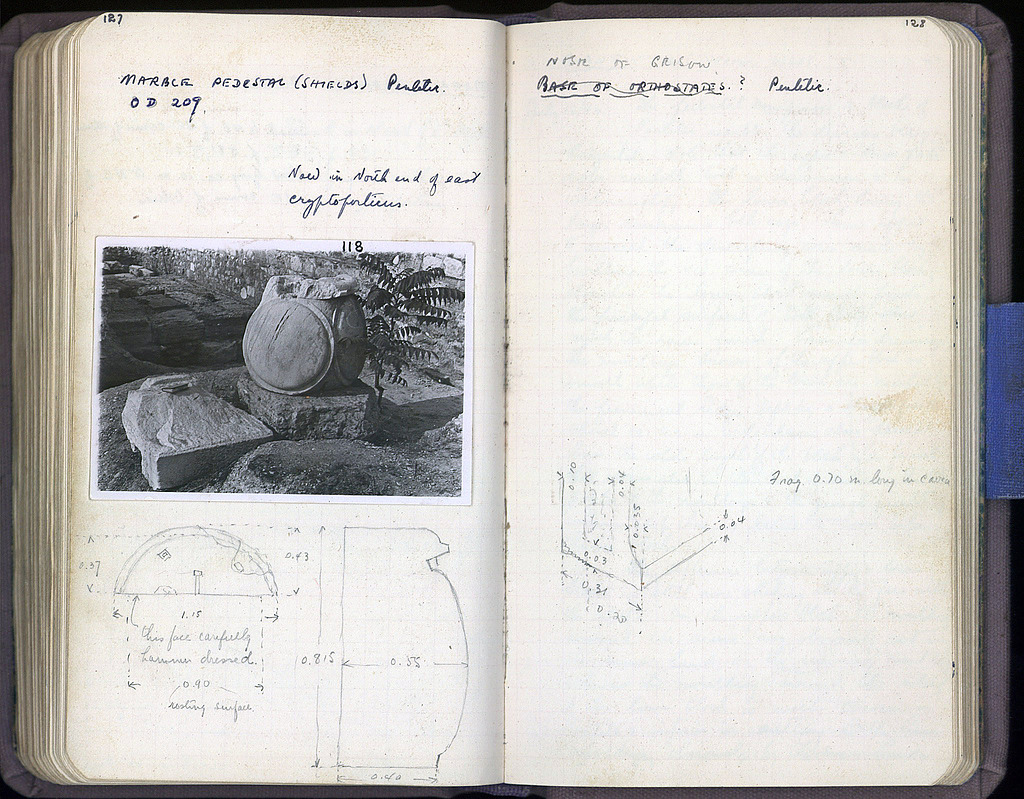 127
MARBLE PEDESTAL (SHIELDS) Pentelic.
OD 209.
Now in North end of east
cryptoporticus.
118
0.37
0.43
1.15
this face carefully
hammer dressed.
0.90
resting surface.
0.815
0.55
0.40
128
NOSE OF
BASE OF ORTHOSTATES.? Pentelic.
Frag. 0.70 m. long in cavea
0.10
0.04
0.035
0.03
0.04